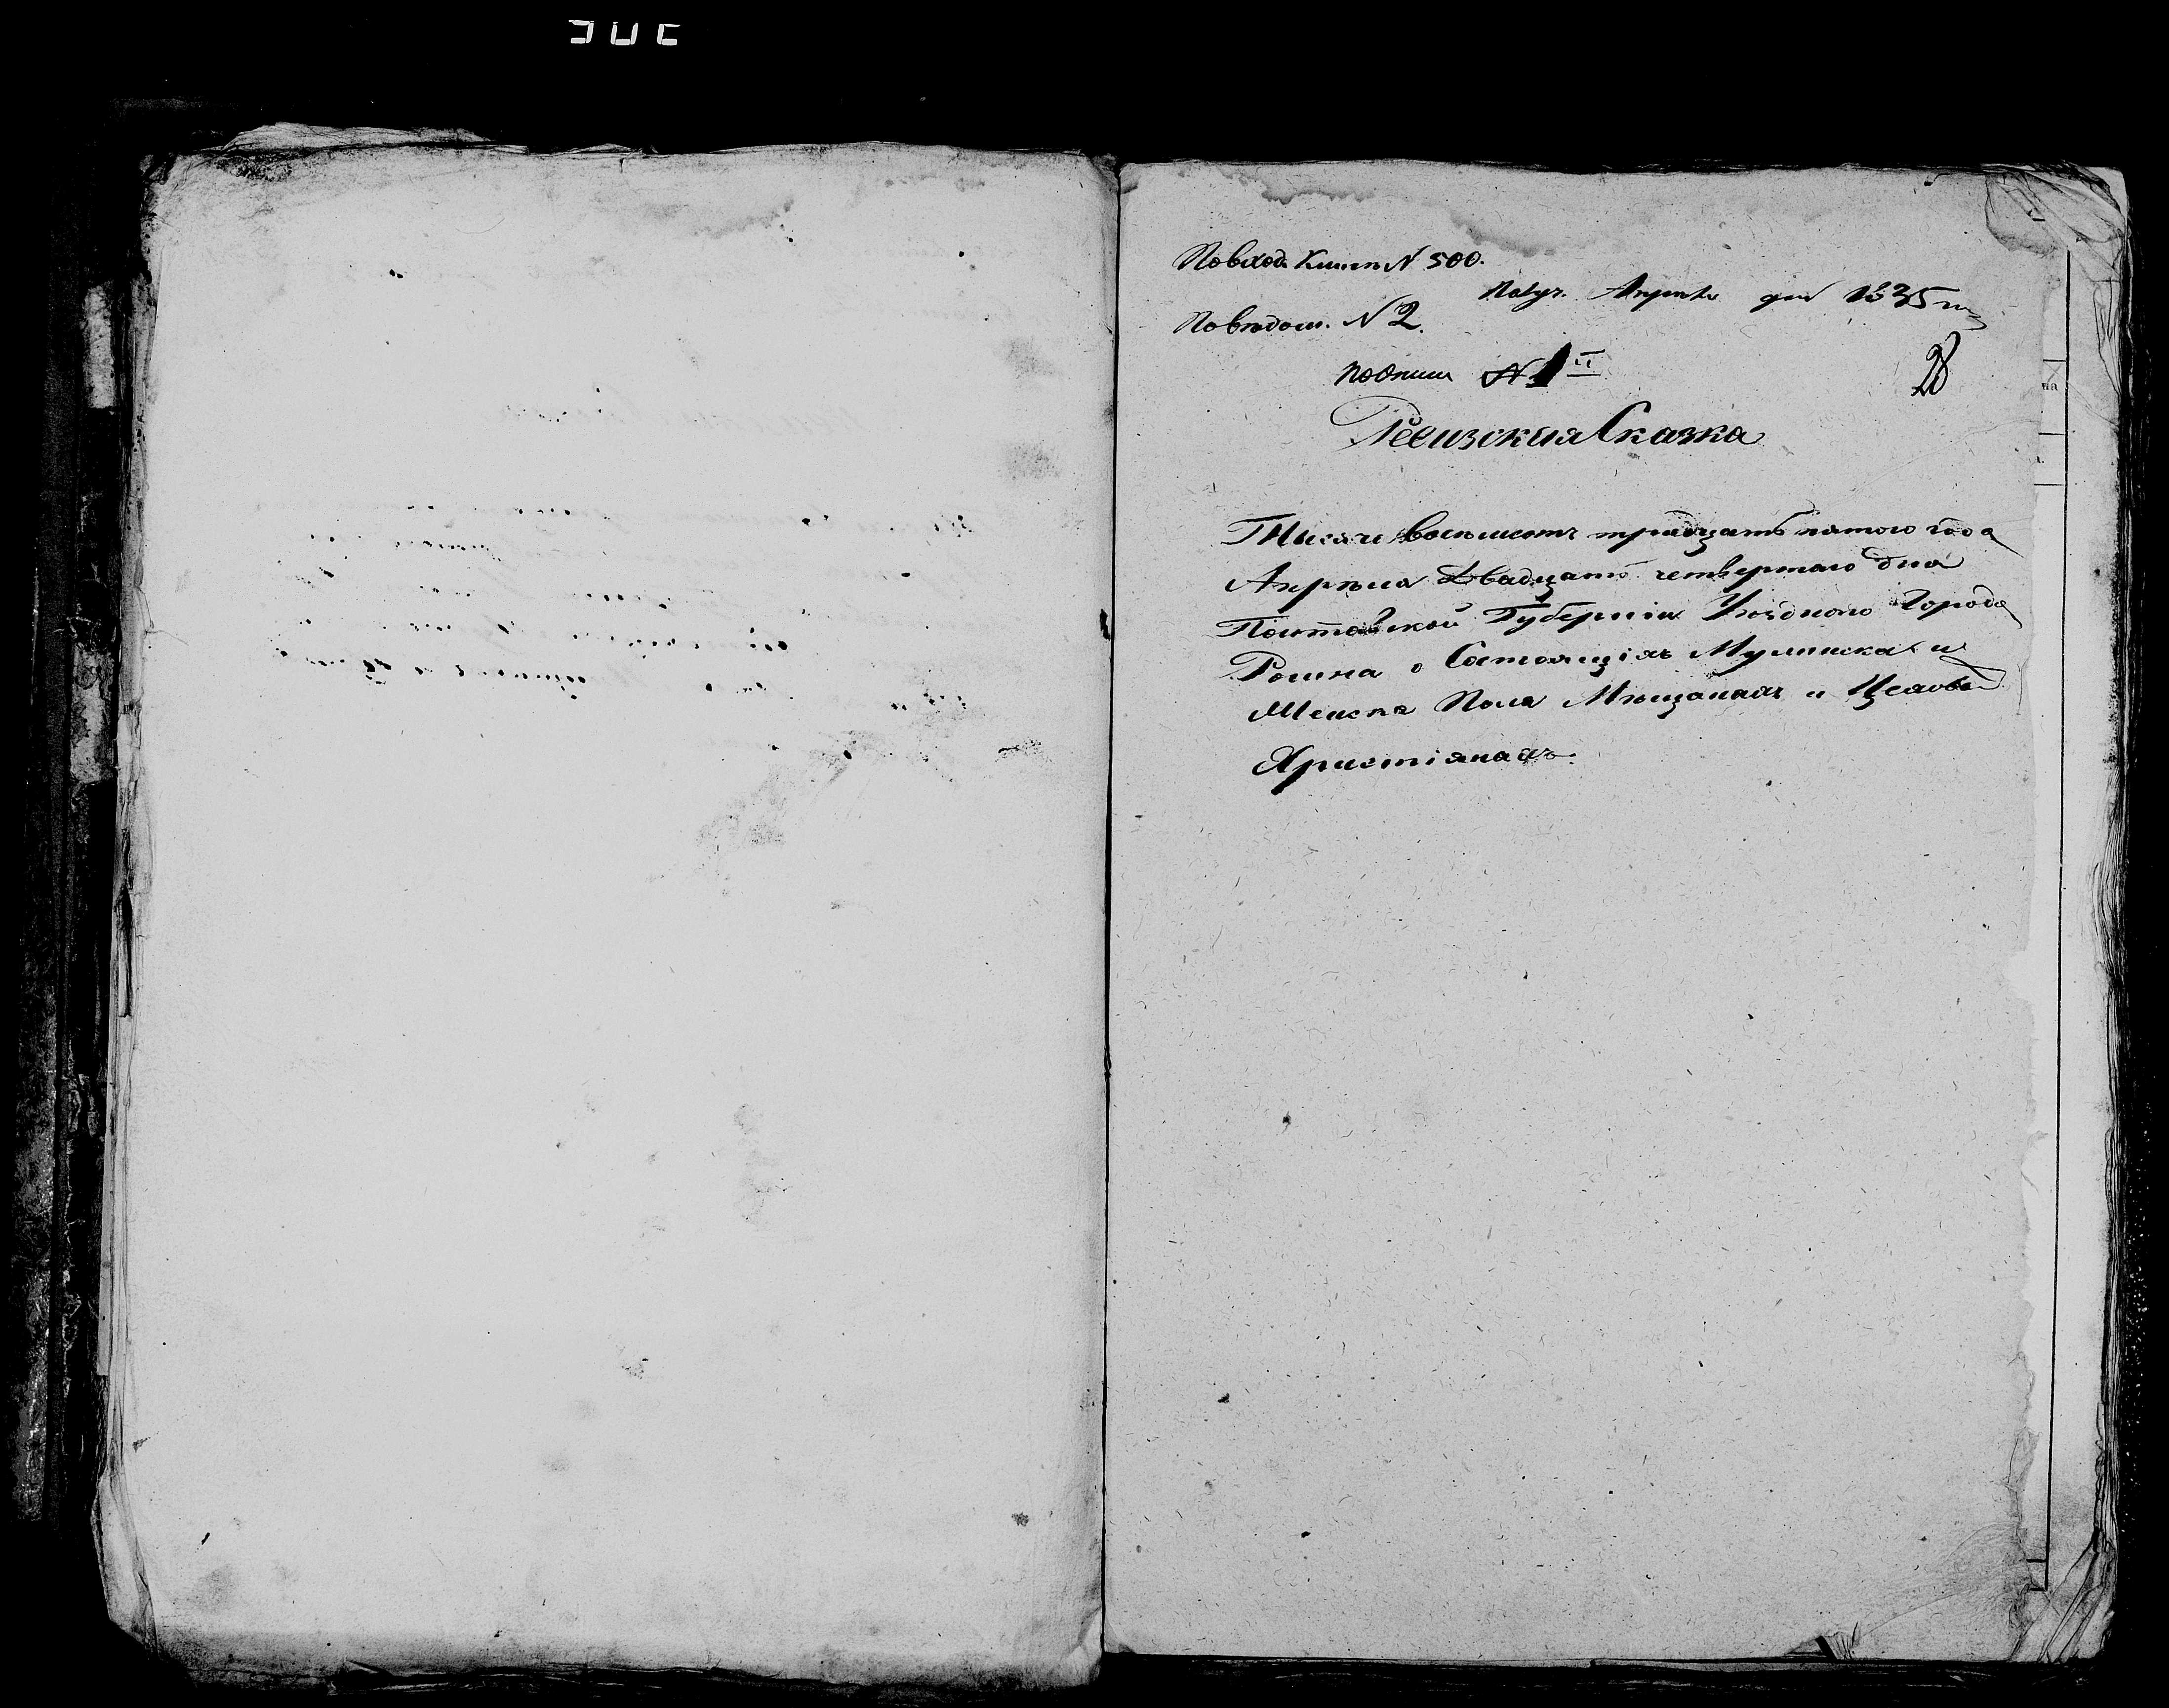 По вход. Книги N 500.
Получ. Апреля дня 1835 го
По ведом. N 2.
по описи N 1й
28
Ревизския Сказка
Тысяче восемсотъ тридцать пятого года
Апреля Двадцать четвертаго дня
Полтавской Губерніи Уезднаго Города
Ромна о Состоящіхъ Мужеска и
Женска Пола Мещанахъ и Цеховы
Христіянахъ.